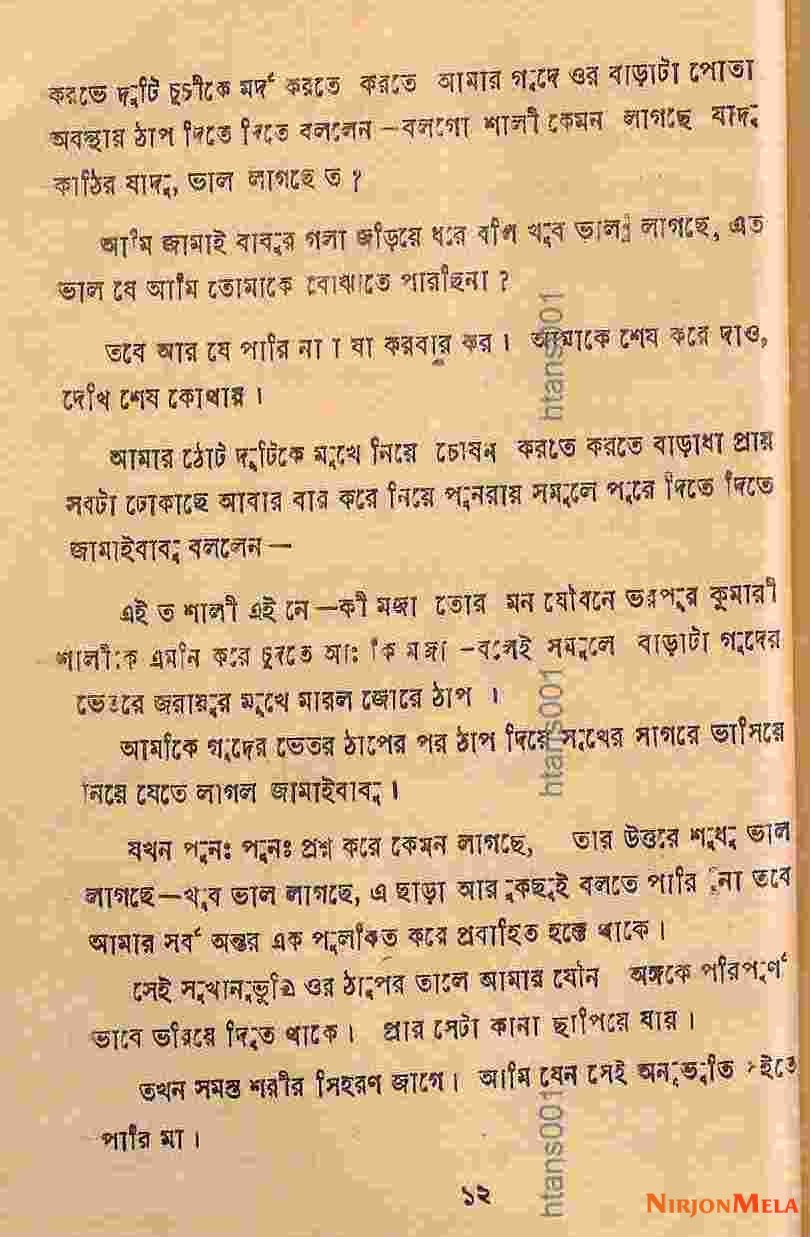 করতে দুটি চুচীকে মর্দ করতে করতে আমার গুদে ওর বাড়াটা পোতা
অবস্থায় ঠাপ দিতে দিতে বললেন —বলগো শালী কেমন লাগছে যাদু
কাঠির যাদু, ভাল লাগছে ত ?
আমি জামাই বাবুর গলা জড়িয়ে ধরে বলি খুব ভাল লাগছে, এত
ভাল যে আমি তোমাকে বোঝাতে পারছিনা ?
তবে আর যে পারি না । যা করবার কর । আমাকে শেষ করে দাও,
দেখি শেষ কোথায় ।
আমার ঠোট দুটিকে মুখে নিয়ে চোষন করতে করতে বাড়াধা প্রায়
সবটা ঢোকাছে আবার বার করে নিয়ে পুনরায় সমুলে পুরে দিতে দিতে
জামাইবাবু বললেন —
এই ত শালী এই নে —কী মজা তোর মন যৌবনে ভরপুর কুমারী
শালীকে এমনি করে চুদতে আঃ কি মজা —বলেই সমুলে বাড়াটা গুদের
ভেতরে জরায়ুর মুখে মারল জোরে ঠাপ ।
আমাকে গুদের ভেতর ঠাপের পর ঠাপ দিয়ে সুখের সাগরে ভাসিয়ে
নিয়ে যেতে লাগল জামাইবাবু ।
যখন পুনঃ পুনঃ প্রশ্ন করে কেমন লাগছে, তার উত্তরে শুধু ভাল
লাগছে—খুব ভাল লাগছে, এ ছাড়া আর কিছুই বলতে পারি না তবে
আমার সর্ব অন্তর এক পুলকিত করে প্রবাহিত হতে থাকে ।
সেই সুখানুভূতি ওর ঠাপের তালে আমার যৌন অঙ্গকে পরিপূর্ণ
ভাবে ভরিয়ে দিতে থাকে । প্রার সেটা কানা ছাপিয়ে যায় ।
তখন সমস্ত শরীর সিহরণ জাগে । আমি যেন সেই অনুভূতি ইতে
পারি মা ।
১২
htans001
htans001
htans001
NIRJONMELA